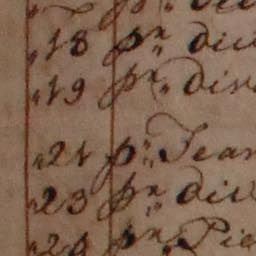 18 pr div
19 pr div
21 pr Jean
23 pr div
24 pr Pie